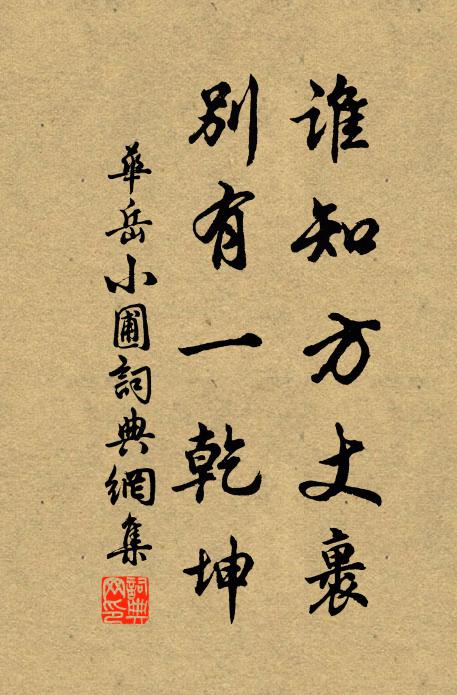 誰知方丈裏
別有一乾坤
華岳小圃詞典網集
詞典网印